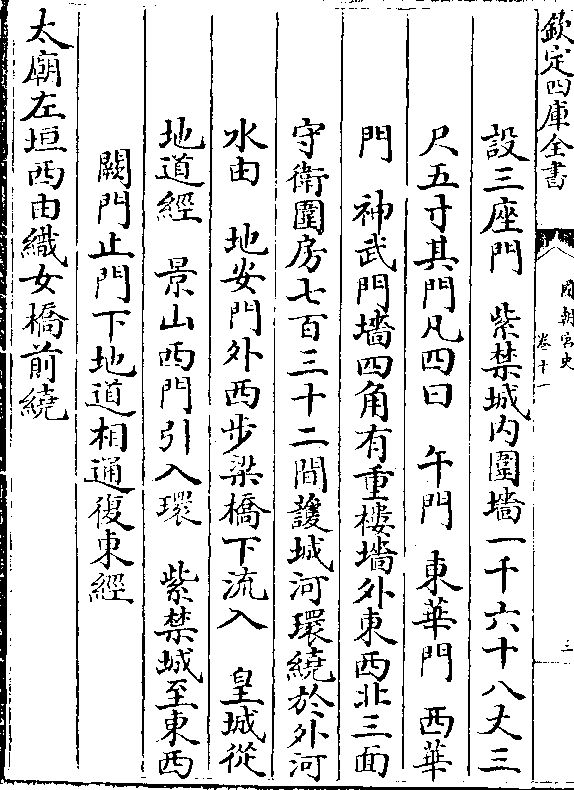 欽定四庫全書
國朝宮史
卷十一
三
設三座門　紫禁城内圍墻一千六十八丈三
尺五寸其門凡四曰　午門　東華門　西華
門　神武門墻四角有重樓墻外東西北三面
守衛圍房七百三十二間護城河環繞於外河
水由　地安門外西步梁橋下流入　皇城從
地道經　景山西門引入環　紫禁城至東西
闕門止門下地道相通復東經
太廟左垣西由織女橋前繞